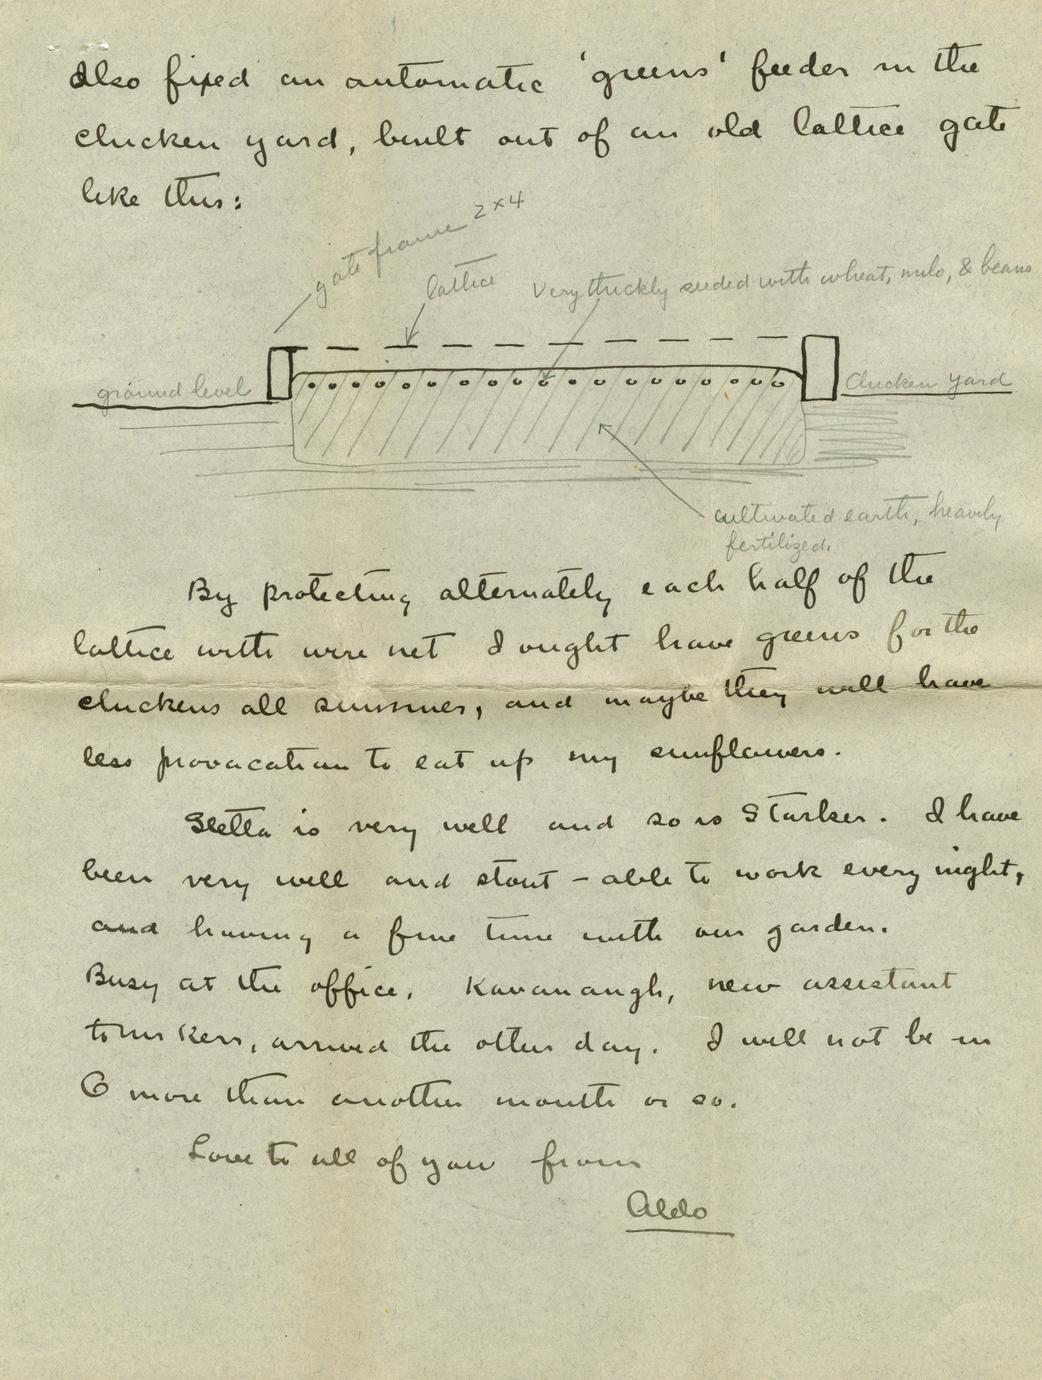 Also fixed an automatic 'greens' feeder in the
chicken yard, built out of an old lattice gate
like this:
gate frame 2x4
lattice
Very thickly seeded with wheat, milo, & beans
ground level
Chicken Yard
cultivated earth, heavily
fertilized.
By protecting alternately each half of the
lattice with wire net I ought have greens for the
chickens all summer, and maybe they will have
less provacation to eat up my sunflowers.
Stella is very well and so is Starker. I have
been very well and stout – able to work every night,
and having a fine time with our garden.
Busy at the office. Kavanaugh, new assistant
to Kerr, arrived the other day. I will not be in
O more than another month or so.
Love to all of you from
Aldo